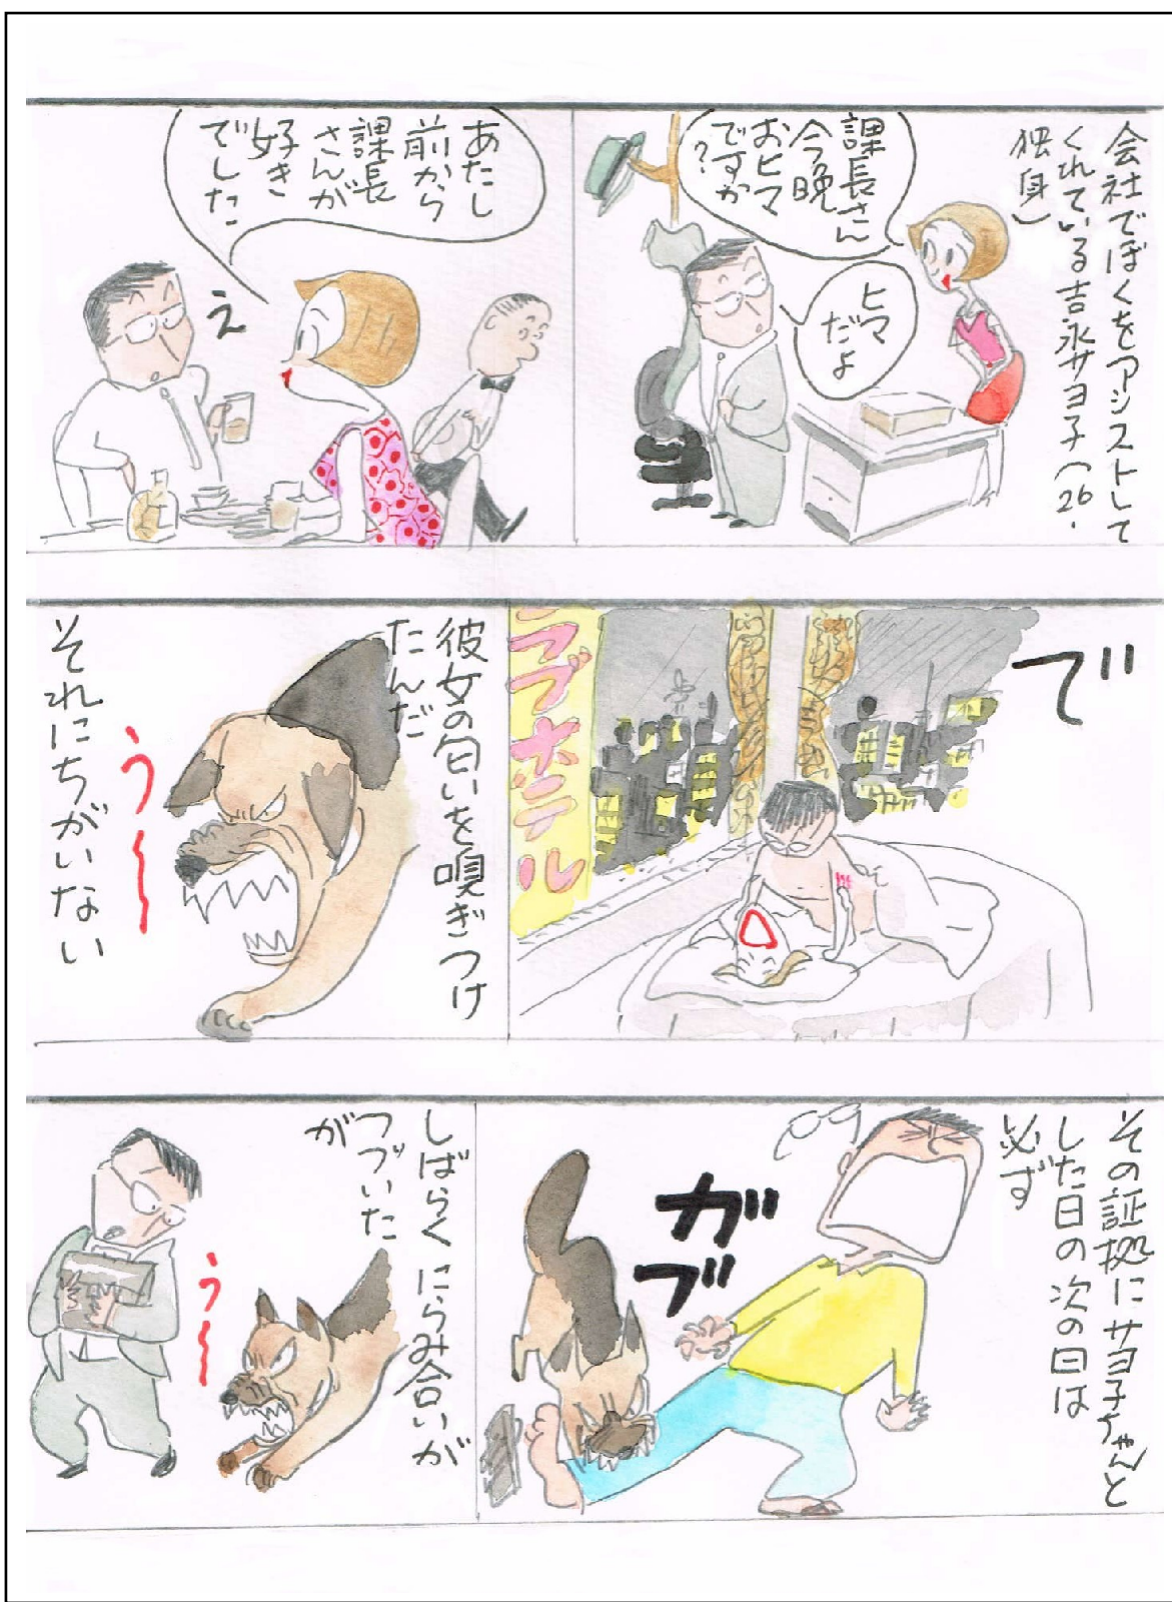 会社でぼくをアシストして
くれている吉永サヨ子(26・
独身)
課長さん
今晩
おヒマ
ですか
?
ヒマ
だよ
あたし
前から
課長
さんが
好き
でした
え
で
ラブホテル
彼女の匂いを嗅ぎつけ
たんだ
それにちがいない
う〜
その証拠にサヨ子ちゃんと
した日の次の日は
必ず
ガブ
しばらくにらみ合いが
つづいた
が
う〜